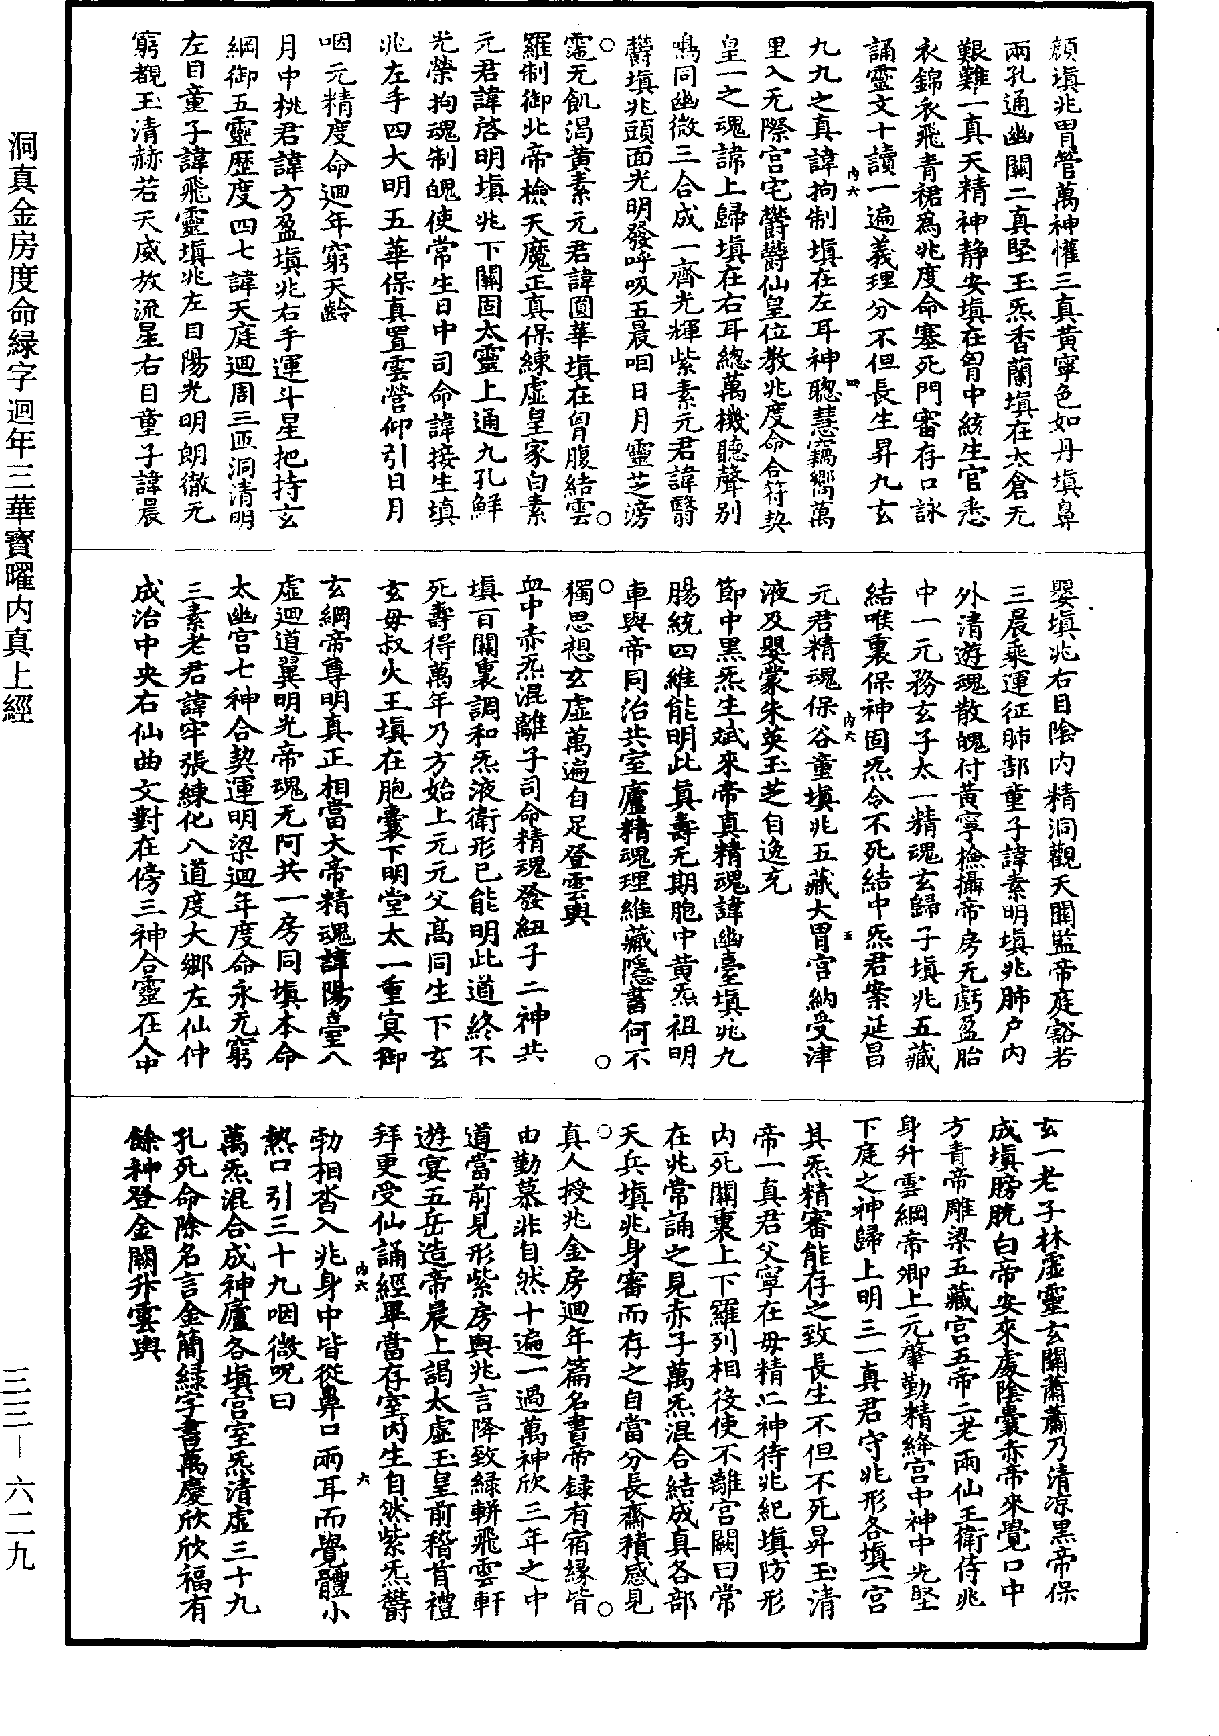 顔塡兆胃管萬神懽三真黃寧色如丹塡鼻
兩孔通幽關二真堅玉炁香蘭塡在太倉无
艱難一真天精神静安塡在胷中統生官悉
衣錦衣飛青裙為兆度命塞死門審存口詠
誦靈文十讀一遍義理分不但長生昇九玄
九九之真諱拘制塡在左耳神聰慧竊嚮萬
里入无際宫宅欝欝仙皇位教兆度命合符契
皇一之魂諱上歸塡在右耳總萬機聽聲别
鳴同幽微三合成一齊光輝紫素元君諱翳
欝塡兆頭面光明發呼吸五晨咽日月靈芝滂
霑无飢渴黃素元君諱圓華塡在胷腹結雲
羅制御北帝檢天魔正真保練虛皇家白素
元君諱啓明塡兆下關固太靈上通九孔鮮
光榮拘魂制魄使常生日中司命諱接生塡
兆左手四大明五華保真置雲營仰引日月
咽元精度命迴年窮天齡
月中桃君諱方盈塡兆右手運斗星把持玄
綱御五靈歷度四七諱天庭迴周三匝洞清明
左目童子諱飛靈塡兆左目陽光明朗徹无
窮覩玉清赫若天威放流星右目童子諱晨
嬰塡兆右目陰内精洞觀天關監帝庭豁若
三晨乘運征肺部童子諱素明塡兆肺户内
外清遊魂散魄付黃寧檢攝帝房无虧盈胎
中一元務玄子太一精魂玄歸子塡兆五藏
結喉裏保神固炁令不死結中炁君案延昌
元君精魂保谷童塡兆五藏大胃宫納受津
液及嬰蒙朱英玉芝自逸充
節中黑炁生斌來帝真精魂諱幽臺塡兆九
腸統四維能明此真壽无期胞中黃炁祖明
車與帝同治共室廬精魂理維藏隱書何不
獨思想玄虛萬遍自足登雲輿
血中赤炁混離子司命精魂發紐子二神共
塡百關裏調和炁液衛形已能明此道終不
死壽得萬年乃方始上元元父高同生下玄
玄母叔火王塡在胞囊下明堂太一重冥御
玄綱帝尊明真正相當大帝精魂諱陽臺八
虛迴道翼明光帝魂无阿共一房同塡本命
太幽宫七神合契運明梁迴年度命永无窮
三素老君諱牢張練化八道度大鄉左仙仲
成治中央右仙曲文對在傍三神合靈在人中
玄一老子林虛靈玄關蕭蕭乃清凉黑帝保
成塡膀胱白帝安來處陰囊赤帝來覺口中
方青帝雕梁五藏宫五帝二老兩仙王衛侍兆
身升雲綱帝卿上元肇勤精絳宫中神中光堅
下庭之神歸上明三一真君守兆形各塡一宫
其炁精審能存之致長生不但不死昇玉清
帝一真君父寧在母精二神待兆紀塡防形
内死關裏上下羅列相役使不離宫闕曰常
在兆常誦之見赤子萬炁混合結成真各部
天兵塡兆身審而存之自當分長齋積感見
真人授兆金房迴年篇名書帝録有宿緣皆
由勤慕非自然十遍一過萬神欣三年之中
道當前見形紫房輿兆言降致緑軿飛雲軒
遊宴五岳造帝晨上謁太虛玉皇前稽首禮
拜更受仙誦經畢當存室内生自然紫炁欝
勃相沓入兆身中皆從鼻口兩耳而覺體小
熱口引三十九咽微呪曰
萬炁混合成神廬各塡宫室炁清虛三十九
孔死命除名言金簡緑字書萬慶欣欣福有
餘神登金闕升雲輿
洞真金房度命緑字迴年三華寶曜内真上經
三三—六二九